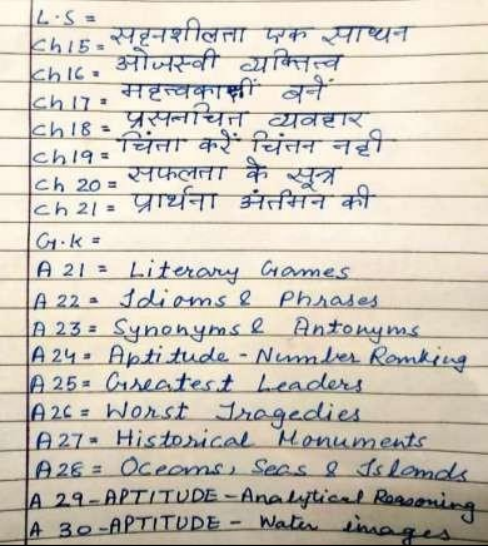 L.S =
Ch15 = सहनशीलता एक साधन
Ch16 = ओजस्वी व्यक्तित्व
Ch17 = महत्त्वकाक्षीं बनें
Ch18 = प्रसनचित्त व्यवहार
Ch19 = चिंता करें चिंतन नही
Ch 20 = सफलता के सूत्र
Ch 21 = प्रार्थना अंर्तमन की
G.K =
A 21 = Literary Games
A 22 = Idioms & Phrases
A 23 = Synonyms & Antonyms
A 24 = Aptitude - Number Ranking
A 25 = Greatest Leaders
A 26 = Worst Tragedies
A 27 = Historical Monuments
A 28 = Oceans, Seas & Islands
A 29 - APTITUDE - Analytical Reasoning
A 30 - APTITUDE - Water images